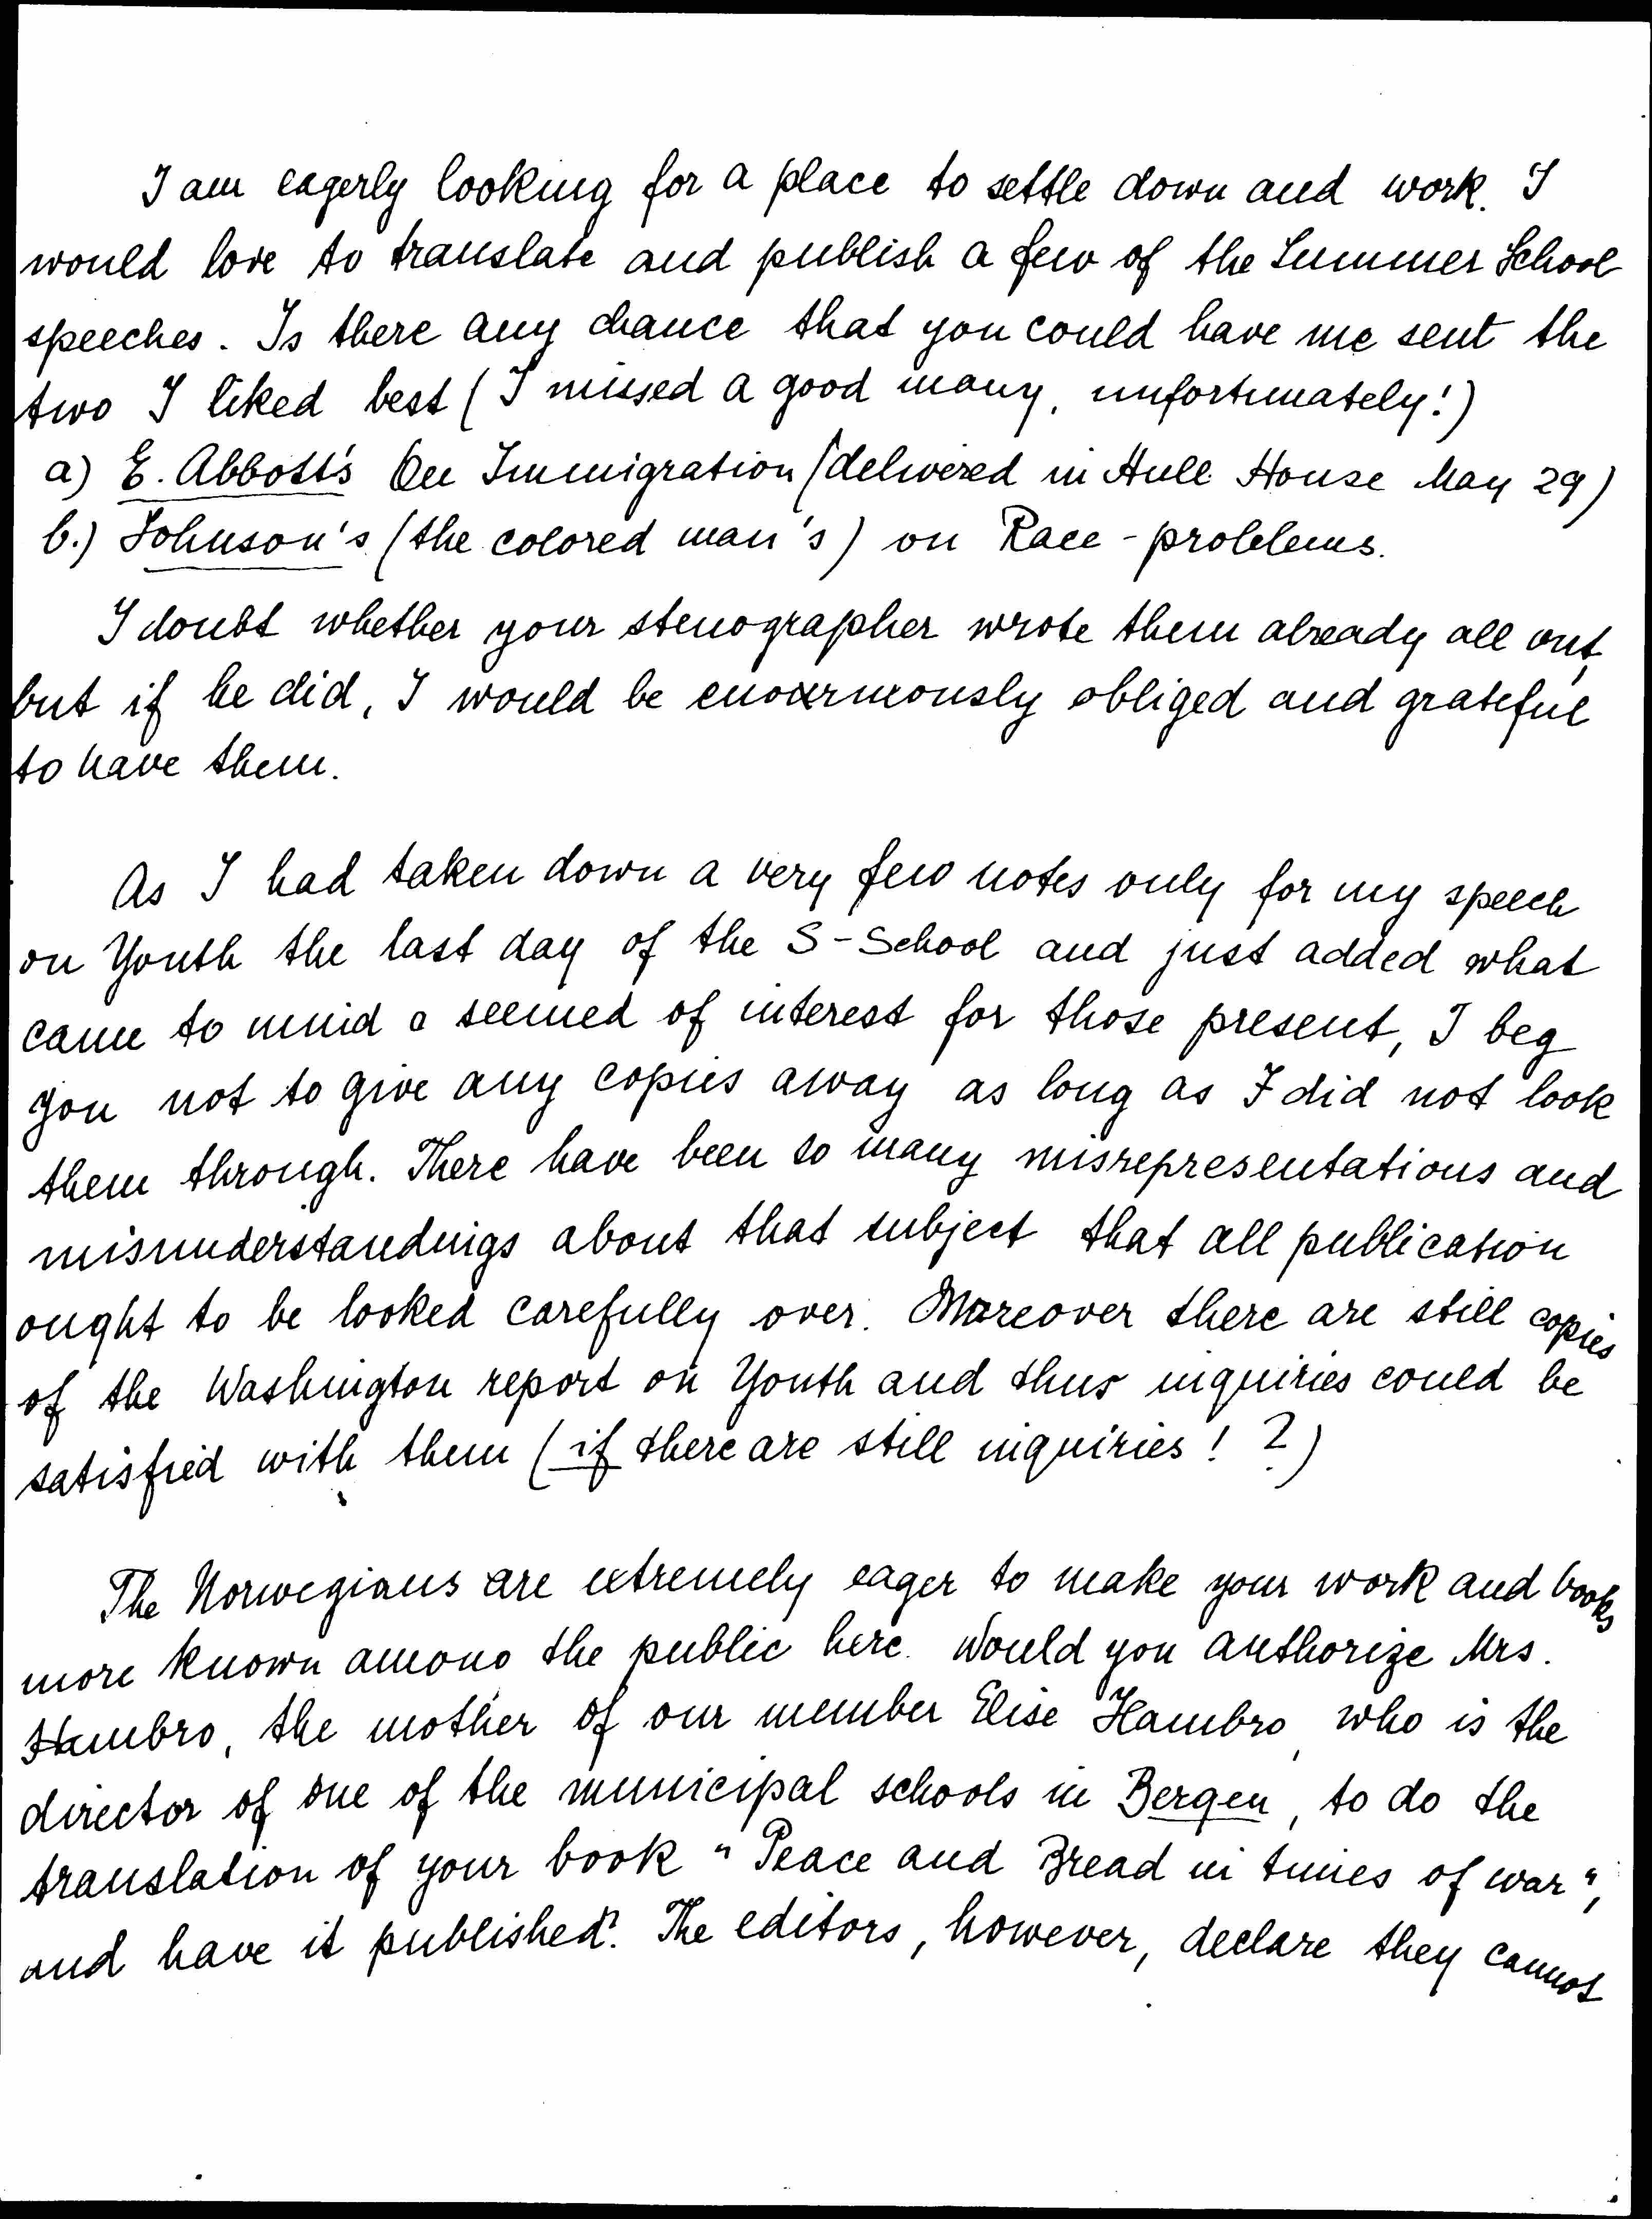 I am eagerly looking for a place to settle down and work. I
would love to translate and publish a few of the Summer School
speeches. Is there any chance that you could have me sent the
two I liked best (I missed a good many, unfortunately!)
a) E. Abbott's On Immigration (delivered in Hull House May 29)
b.) Johnson's (the colored man's) on Race-problems.
I doubt whether your stenographer wrote them already all out,
but if he did, I would be enourmously obliged and grateful
to have them.
As I had taken down a very few notes only for my speech
on Youth the last day of the S-School and just added what
came to mind a seemed of interest for those present, I beg
you not to give any copies away as long as I did not look
them through. There have been so many misrepresentations and
misunderstandings about that subject that all publication
ought to be looked carefully over. Moreover there are still copies
of the Washington report on Youth and thus inquiries could be
satisfied with them (if there are still inquiries! ?)
The Norwegians are extremely eager to make your work and books
more known amono the public here. Would you authorize Mrs.
Hambro, the mother of our member Elise Hambro, who is the
director of one of the municipal schools in Bergen, to do the
translation of your book "Peace and Bread in times of war",
and have it published? The editors, however, declare they cannot